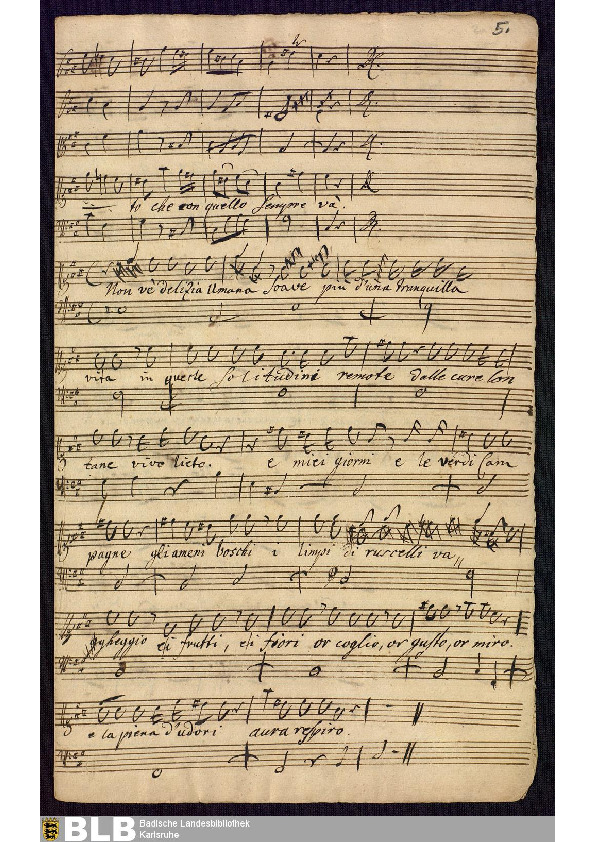 5.
to che con quello sempre va.
Non ve delizia umana soave piu d'una tranquilla
vita in queste solitudini remote dalle cure lon
tane vivo lieto. e miei giorni e le verdi Cam
pagne gli ameni boschi i limpi di ruscelli va,,
gheggio di frutti, di fiori or coglio, or gusto, or miro.
e la piena d'udori aura respiro.
BLB Badische Landesbibliothek
Karlsruhe